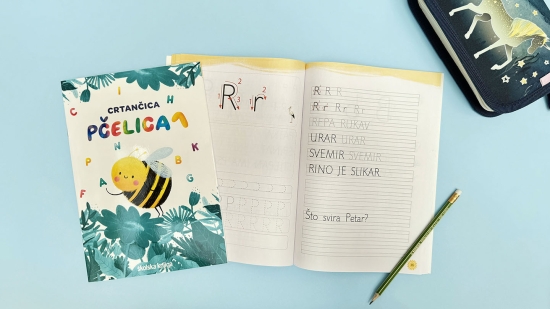 CRTANČICA
PČELICA 1
školska knjiga
R r
R R R
R r R r R r
REPA RUKAV
URAR URAR
SVEMIR SVEMIR
RINO JE SLIKAR.
Što svira Petar?